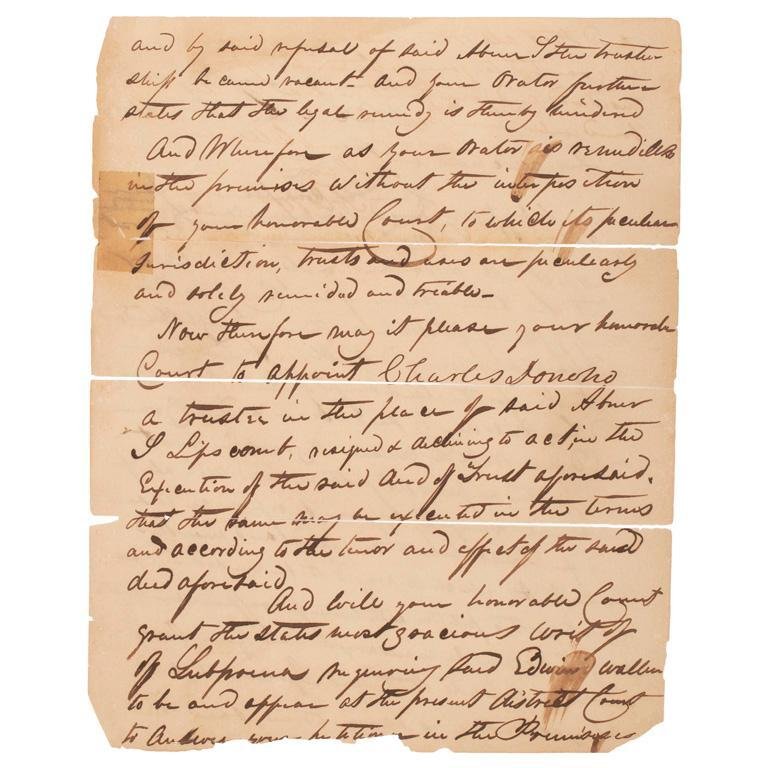 and by said refusal of said Abner S the trustee
ship be came vacant - and your Orator further
states that the legal remedy is thereby hindered
And Wherefore as your Orator is remediless
in the premises without the interposition
of your honorable Court, to which its peculiar
Jurisdiction, trusts and uses are peculiarly
and solely remided and triable -
Now therefore may it please your honorable
Court to appoint Charles Donoho
a trustee in the place of said Abner
S Lipscomb, resigned & declining to act, in the
Execution of the said deed of Trust aforesaid.
that the same may be executed in the terms
and according to the tenor and effect of the said
deed aforesaid
And will your honorable Court
grant the states most gracious writ of
of Subpoena requiring said Edwin Waller
to be and appear at the present district Court
to Answer your petitioner in the Premises